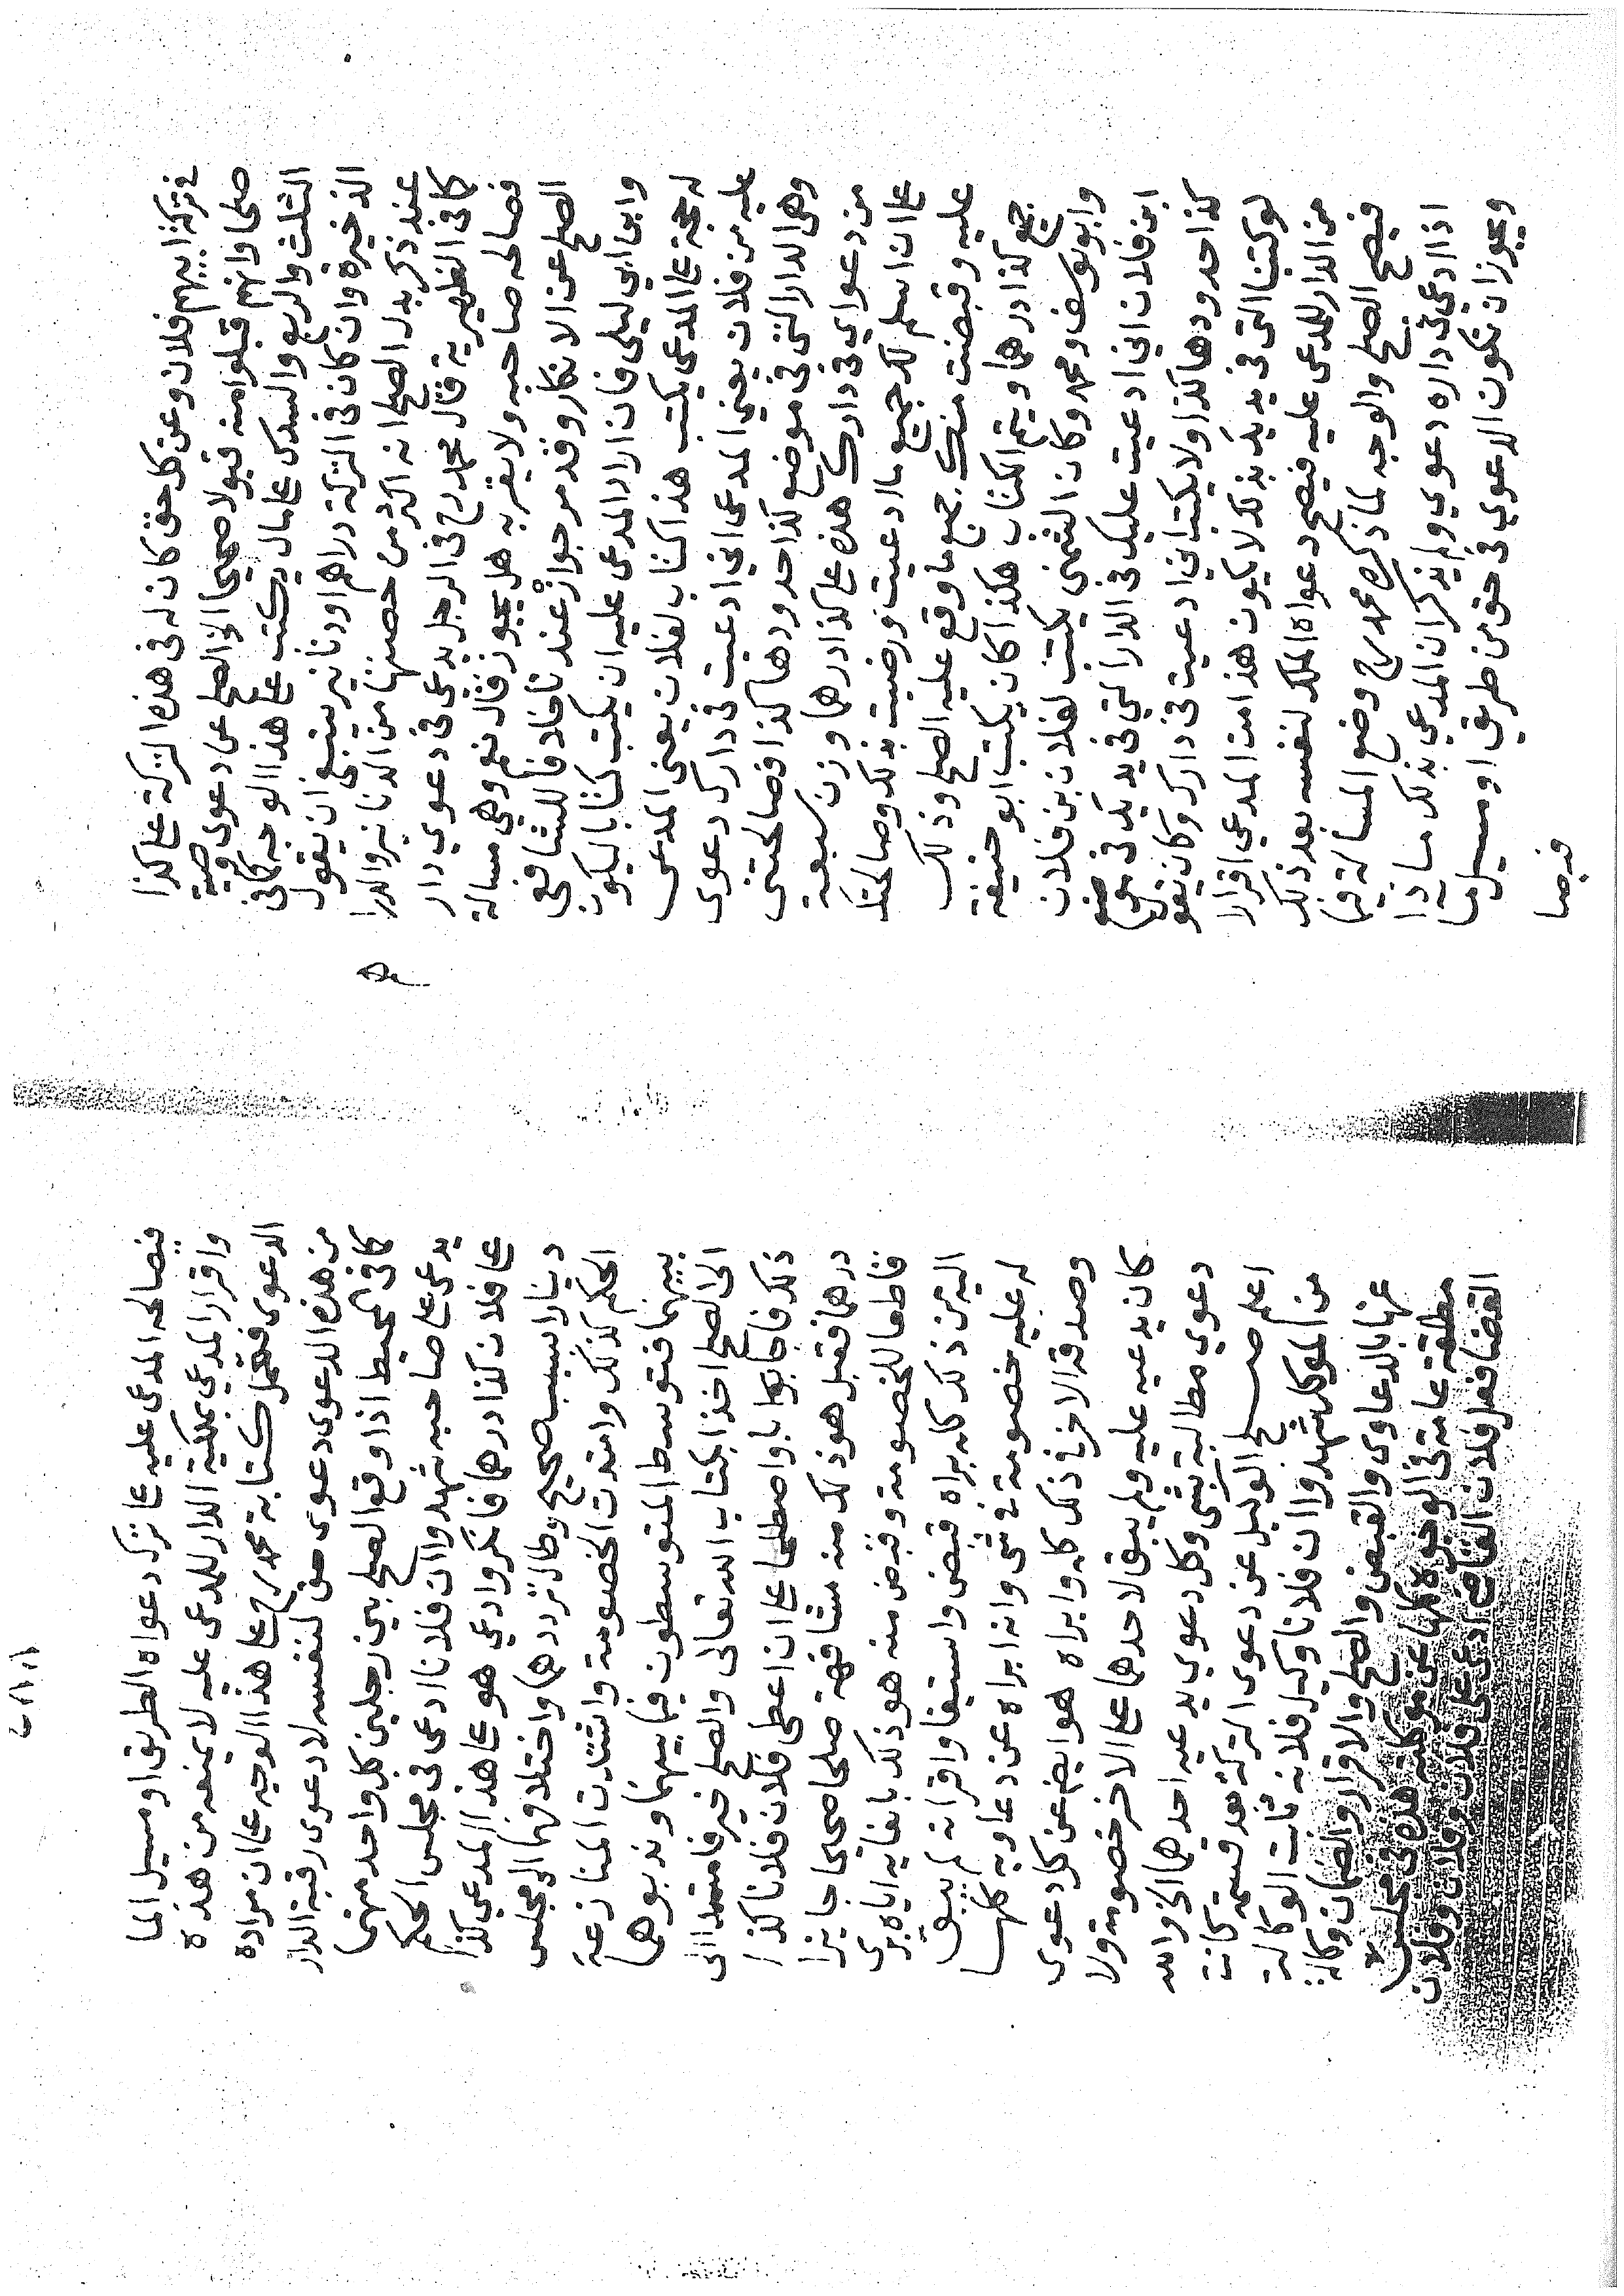 في تركة ابيهم فلان وعن كل حق كان له في هذه التركة على كذا
صلحا وانهم قبلوا منه قبولا صحيحا الى الصلح عن دعوى وصية
الثلث والربع والسدس على مال يكتب على هذا الوجه كما في
الذخيرة وان كان في التركة دراهم او دنانير ينبغي ان يقول
عند ذكر بدل الصلح انه اكثر من حصتها من الدنانير والدرا
كما في الظهيرية قال محمد رح في الرجل يدعي في دعوي دار
فصالحه صاحبه ولا يقر به هل يجوز قال نعم وهي مسالة
الصلح عن الانكار وقد مر جوازه عندنا خلافا للشافعي
وابن ابي ليلى فان اراد المدعى عليه ان يكتب كتابا ليكون
له حجة على المدعي يكتب هذا كتاب لفلان يعني المدعى
عليه من فلان يعني المدعي اني ادعيت في دارك دعوى
وهي الدار التي في موضع كذا حدودها كذا فصالحتني
من دعواي في دارك هذه على كذا درهما وزن سبعة
على ان اسلم لك جميع ما ادعيت ورضيت بذلك وصالحتك
عليه وقبضت منك جميع ما وقع عليه الصلح وذلك
كذا درهما ويتم الكتاب هكذا كان يكتب ابو حنيفة
وابو يوسف ومحمد وكان الشمني يكتب لفلان بن فلان
ابن فلان اني ادعيت عليك في الدار التي في يديك في موضع
كذا حدودها كذا ولا يكتب اني ادعيت في دارك وكان يقو
لو كتبنا التي في يديك بذلك لا يكون هذا من المدعي اقرارا
من الدار للمدعى عليه فيصح دعواه الملك لنفسه بعد ذلك
فيصح الصلح والوجه لما ذكره محمد رح وضع المسألة فيما
اذا ادعي في داره دعوي ولم يذكر ان المدعي بذلك ماذا
ويجوز ان تكون الدعوي في حق من طريق او مسيل ما
فيصا
فيصالحه المدعى عليه على ترك دعواه الطريق او مسيل الما
واقرار المدعي بملكية الدار للمدعى عليه لا يمنعه من هذه
الدعوى فتحمل كتابة محمد رح على هذا الوجه على ان مراده
من هذه الدعوى دعوى حق لنفسه لا دعوى رقبة الدار
كما في المحيط اذا وقع الصلح بين رجلين كل واحد منهما
يدعى على صاحبه شهدوا ان فلانا ادعى في مجلس الحكم
على فلان كذا درهما فانكر وادعي هو على هذا المدعي كذا
دينارا بسبب صحيح وطال ترددهما واختلافهما الى مجلس
الحكم كذلك وامتدت الخصومة واشتدت المنازعة
بينهما فتوسط المتوسطون فيما بينهما وندبوهما
الى الصلح اخذا بكتاب الله تعالى والصلح خير فامتدا الى
ذلك فاجابوا واصطلحا على ان اعطى فلان فلانا كذا
درهما فقبل هو ذلك منه مشافهة صلحا صحيحا جايزا
قاطعا للخصومة وقبض منه هو ذلك بايفايه اياه برى
اليه من ذلك كله براه قبض واستيفا واقر انه لم يبق
له عليه خصومة في شى وانه ابراه عن دعاويه كلها
وصدقه الاخر في ذلك كله وابراه هو ايضا عن كل دعوى
كان يدعيه عليه ولم يبق لاحدهما على الاخر خصومة ولا
دعوي مطالبة بشى وكل دعوي يدعيه احدهما الخ والله
اعلم صلح الوكيل عن دعوى التركة بعد قسمة كانت
من الموكل شهدوا ان فلانا وكيل فلانة ثابت الوكالة
عنها بالدعاوى والقبض والصلح والاقرار والضمان وكالة
مطلقة عامة في الوجوه كلها عن موكلته هذه في مجلس
القضا فعل فلان القاضي ادعى على فلان وفلان وفلان